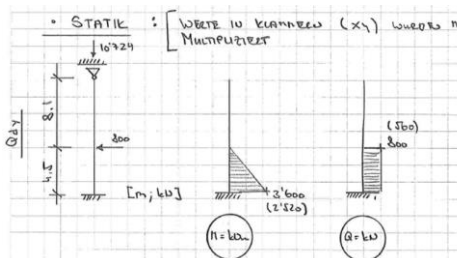 • STATIK : [ WERTE IN KLAMMERN (XY) WURDEN
MULTIPLIZIERT
10'724
8.1
Qdy
800
4.5
[m; kN]
3'600
(2'520)
(560)
800
M=kNm
Q=kN